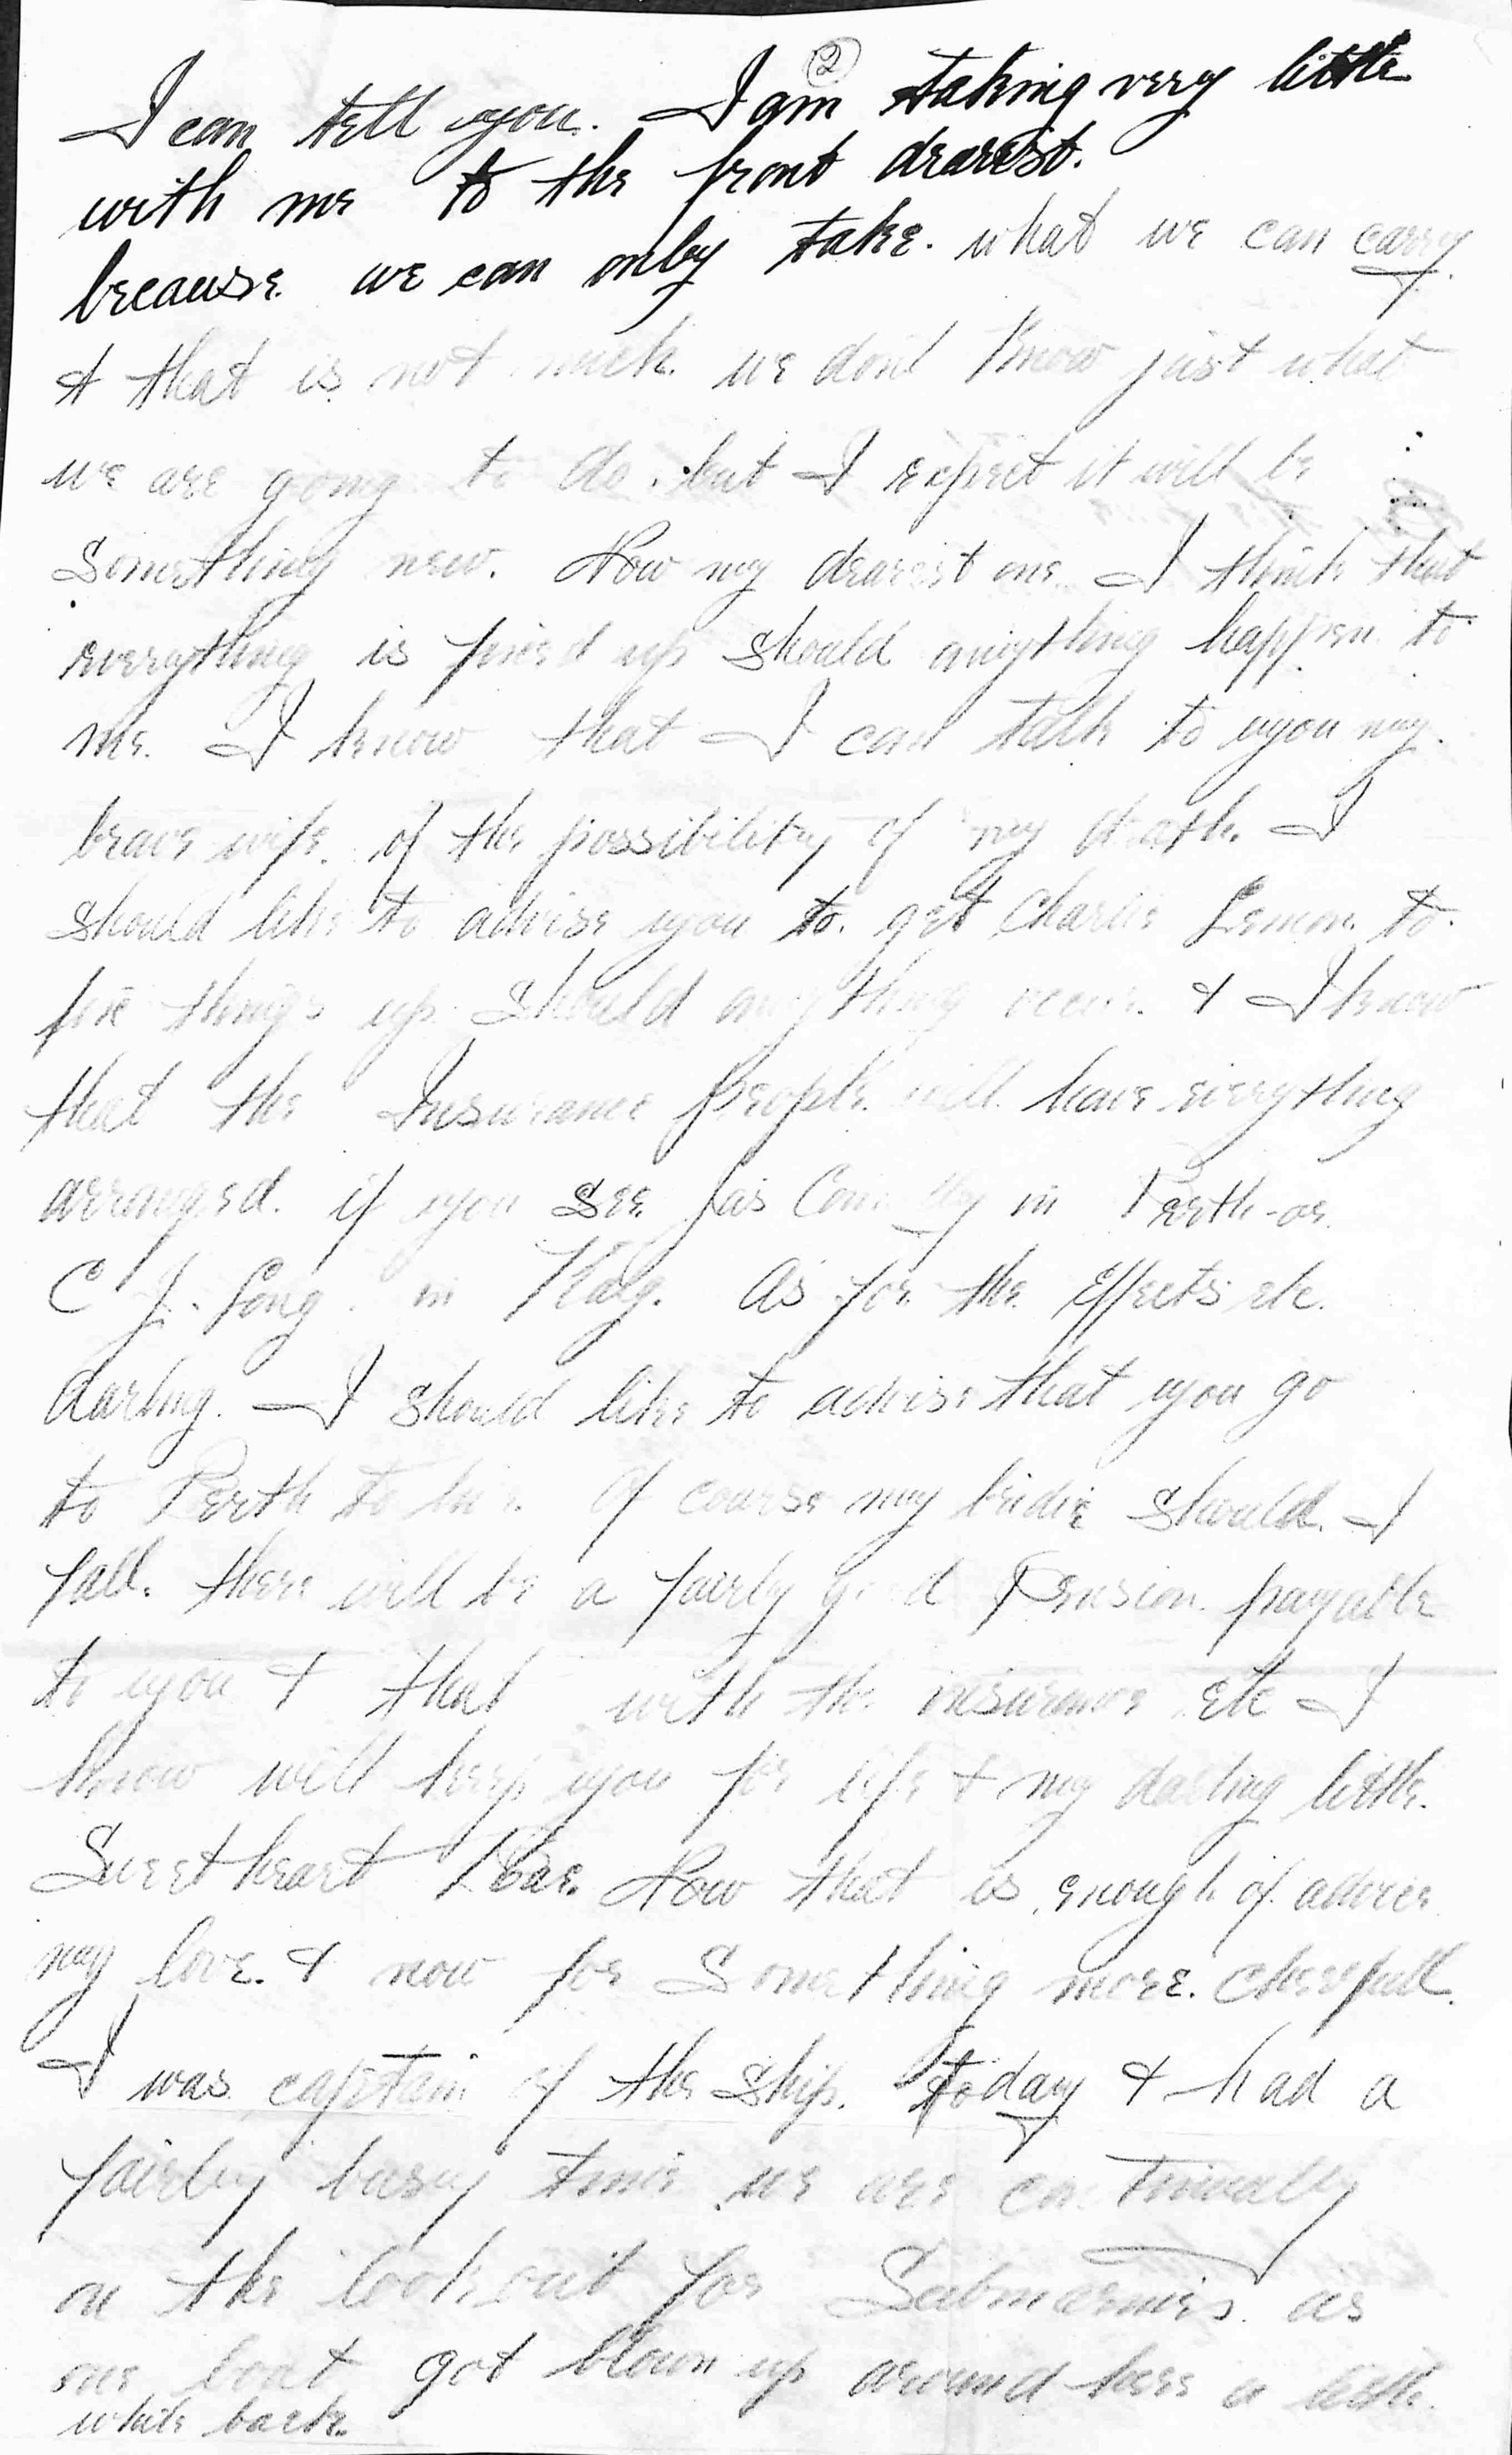 (2)
I can tell you. I am taking very little
with me to the front dearest.
because we can only take. what we can carry.
& that is not much. we dont know just what
we are going to do. but I expect it will be
Something new. Now my dearest one. I think that
everything is fixed up should anything happen to
me. I know that I can talk to you my.
brave wife. of the possibility of my death. I
should like to advise you to. get Charlie Lemon. to.
fix things up should anything occur. & I know
that the Insurance people. will have everything
arranged. if you see Jas in Perth-or.
C J. Long. in Kalg. As for the Effects etc.
darling. I should like to advise that you go
to Perth to live. Of course my bridie should. I
fall. there will be a fairly good Pension. payable
to you & that with the insurance etc I
know will keep you for life & my darling little.
Sweetheart Now that is enough of advice
my love. & now for Something more. cheerfull.
I was captain of the ship. today & had a
fairly busy time. we are continually
on the look out for Submarines. as
one boat got blown up around here a little.
while back.